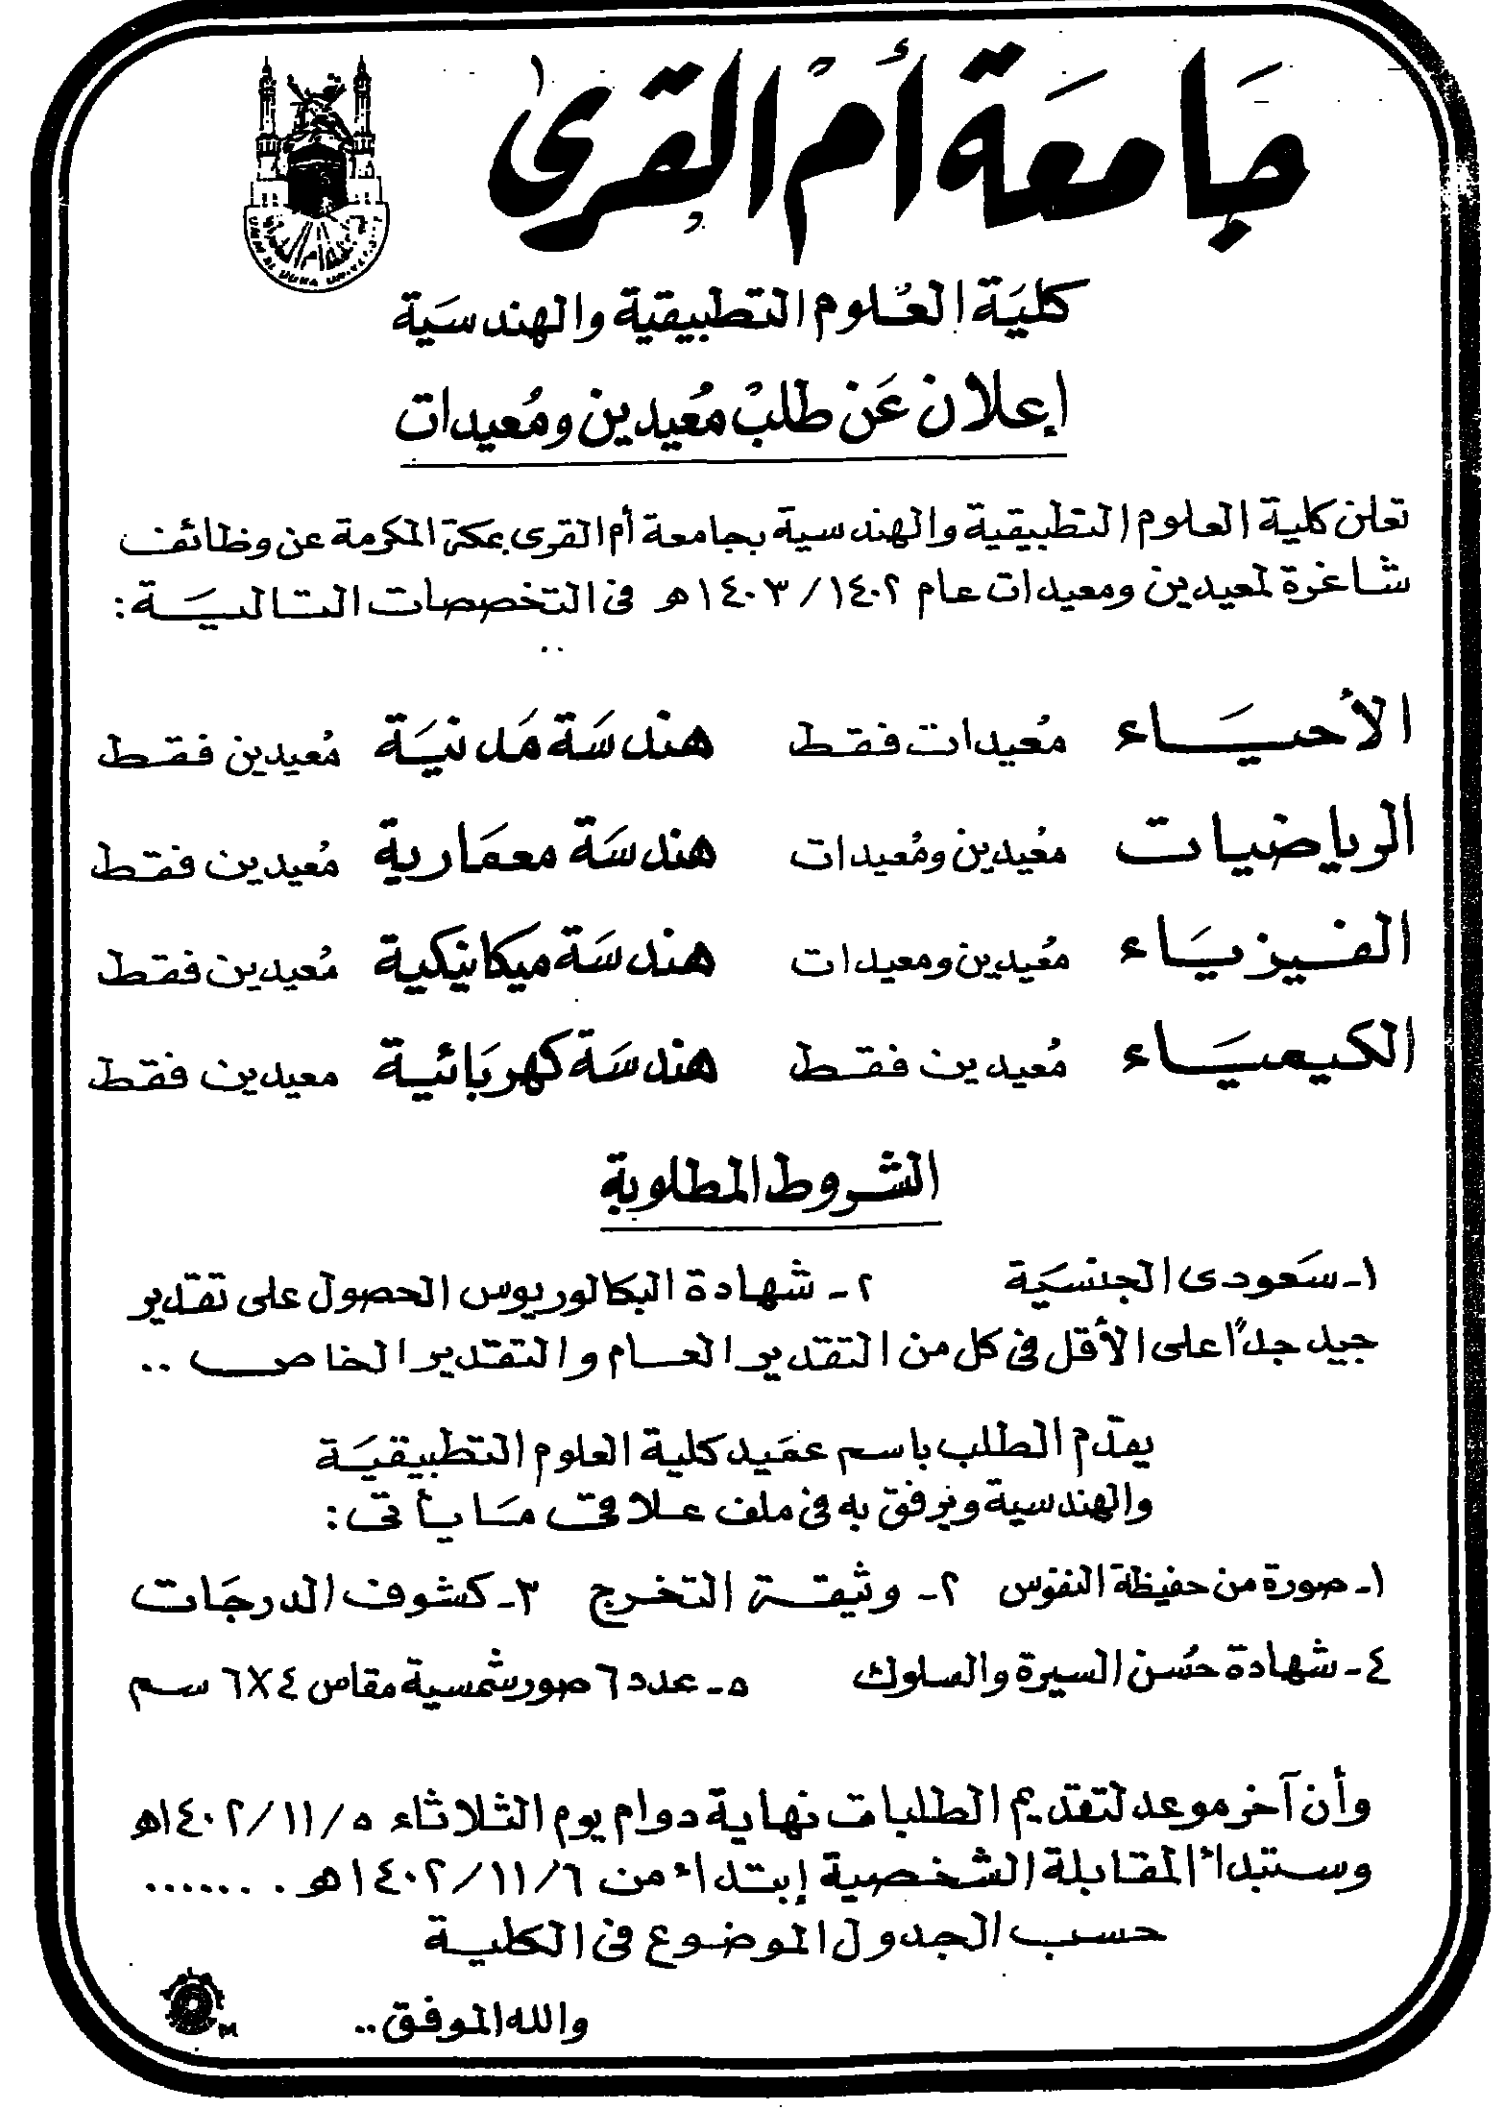 جامعة أم القرى
كلية العلوم التطبيقية والهندسية
إعلان عن طلب معيدين ومعيدات
تعلن كلية العلوم التطبيقية والهندسية بجامعة أم القرى بمكة المكرمة عن وظائف
شاغرة لمعيدين ومعيدات عام ١٤٠٢/١٤٠٣هـ فى التخصصات التالية:
الأحياء معيدات فقط هندسة مدنية معيدين فقط
الرياضيات معيدين ومعيدات هندسة معمارية معيدين فقط
الفيزياء معيدين ومعيدات هندسة ميكانيكية معيدين فقط
الكيمياء معيدين فقط هندسة كهربائية معيدين فقط
الشروط المطلوبة
١- سعودى الجنسية ٢- شهادة البكالوريوس الحصول على تقدير
جيد جداً على الأقل فى كل من التقدير العام والتقدير الخاص ..
يقدم الطلب باسم عميد كلية العلوم التطبيقية
والهندسية ويرفق به فى ملف علاقى ما يأتى:
١- صورة من حفيظة النفوس ٢- وثيقة التخرج ٣- كشوف الدرجات
٤- شهادة حسن السيرة والسلوك ٥- عدد ٦ صور شمسية مقاس ٤×٦ سم
وأن آخر موعد لتقديم الطلبات نهاية دوام يوم الثلاثاء ١٤٠٢/١١/٥هـ
وستبدأ المقابلة الشخصية إبتداء من ١٤٠٢/١١/٦هـ .......
حسب الجدول الموضوع فى الكلية
والله الموفق..